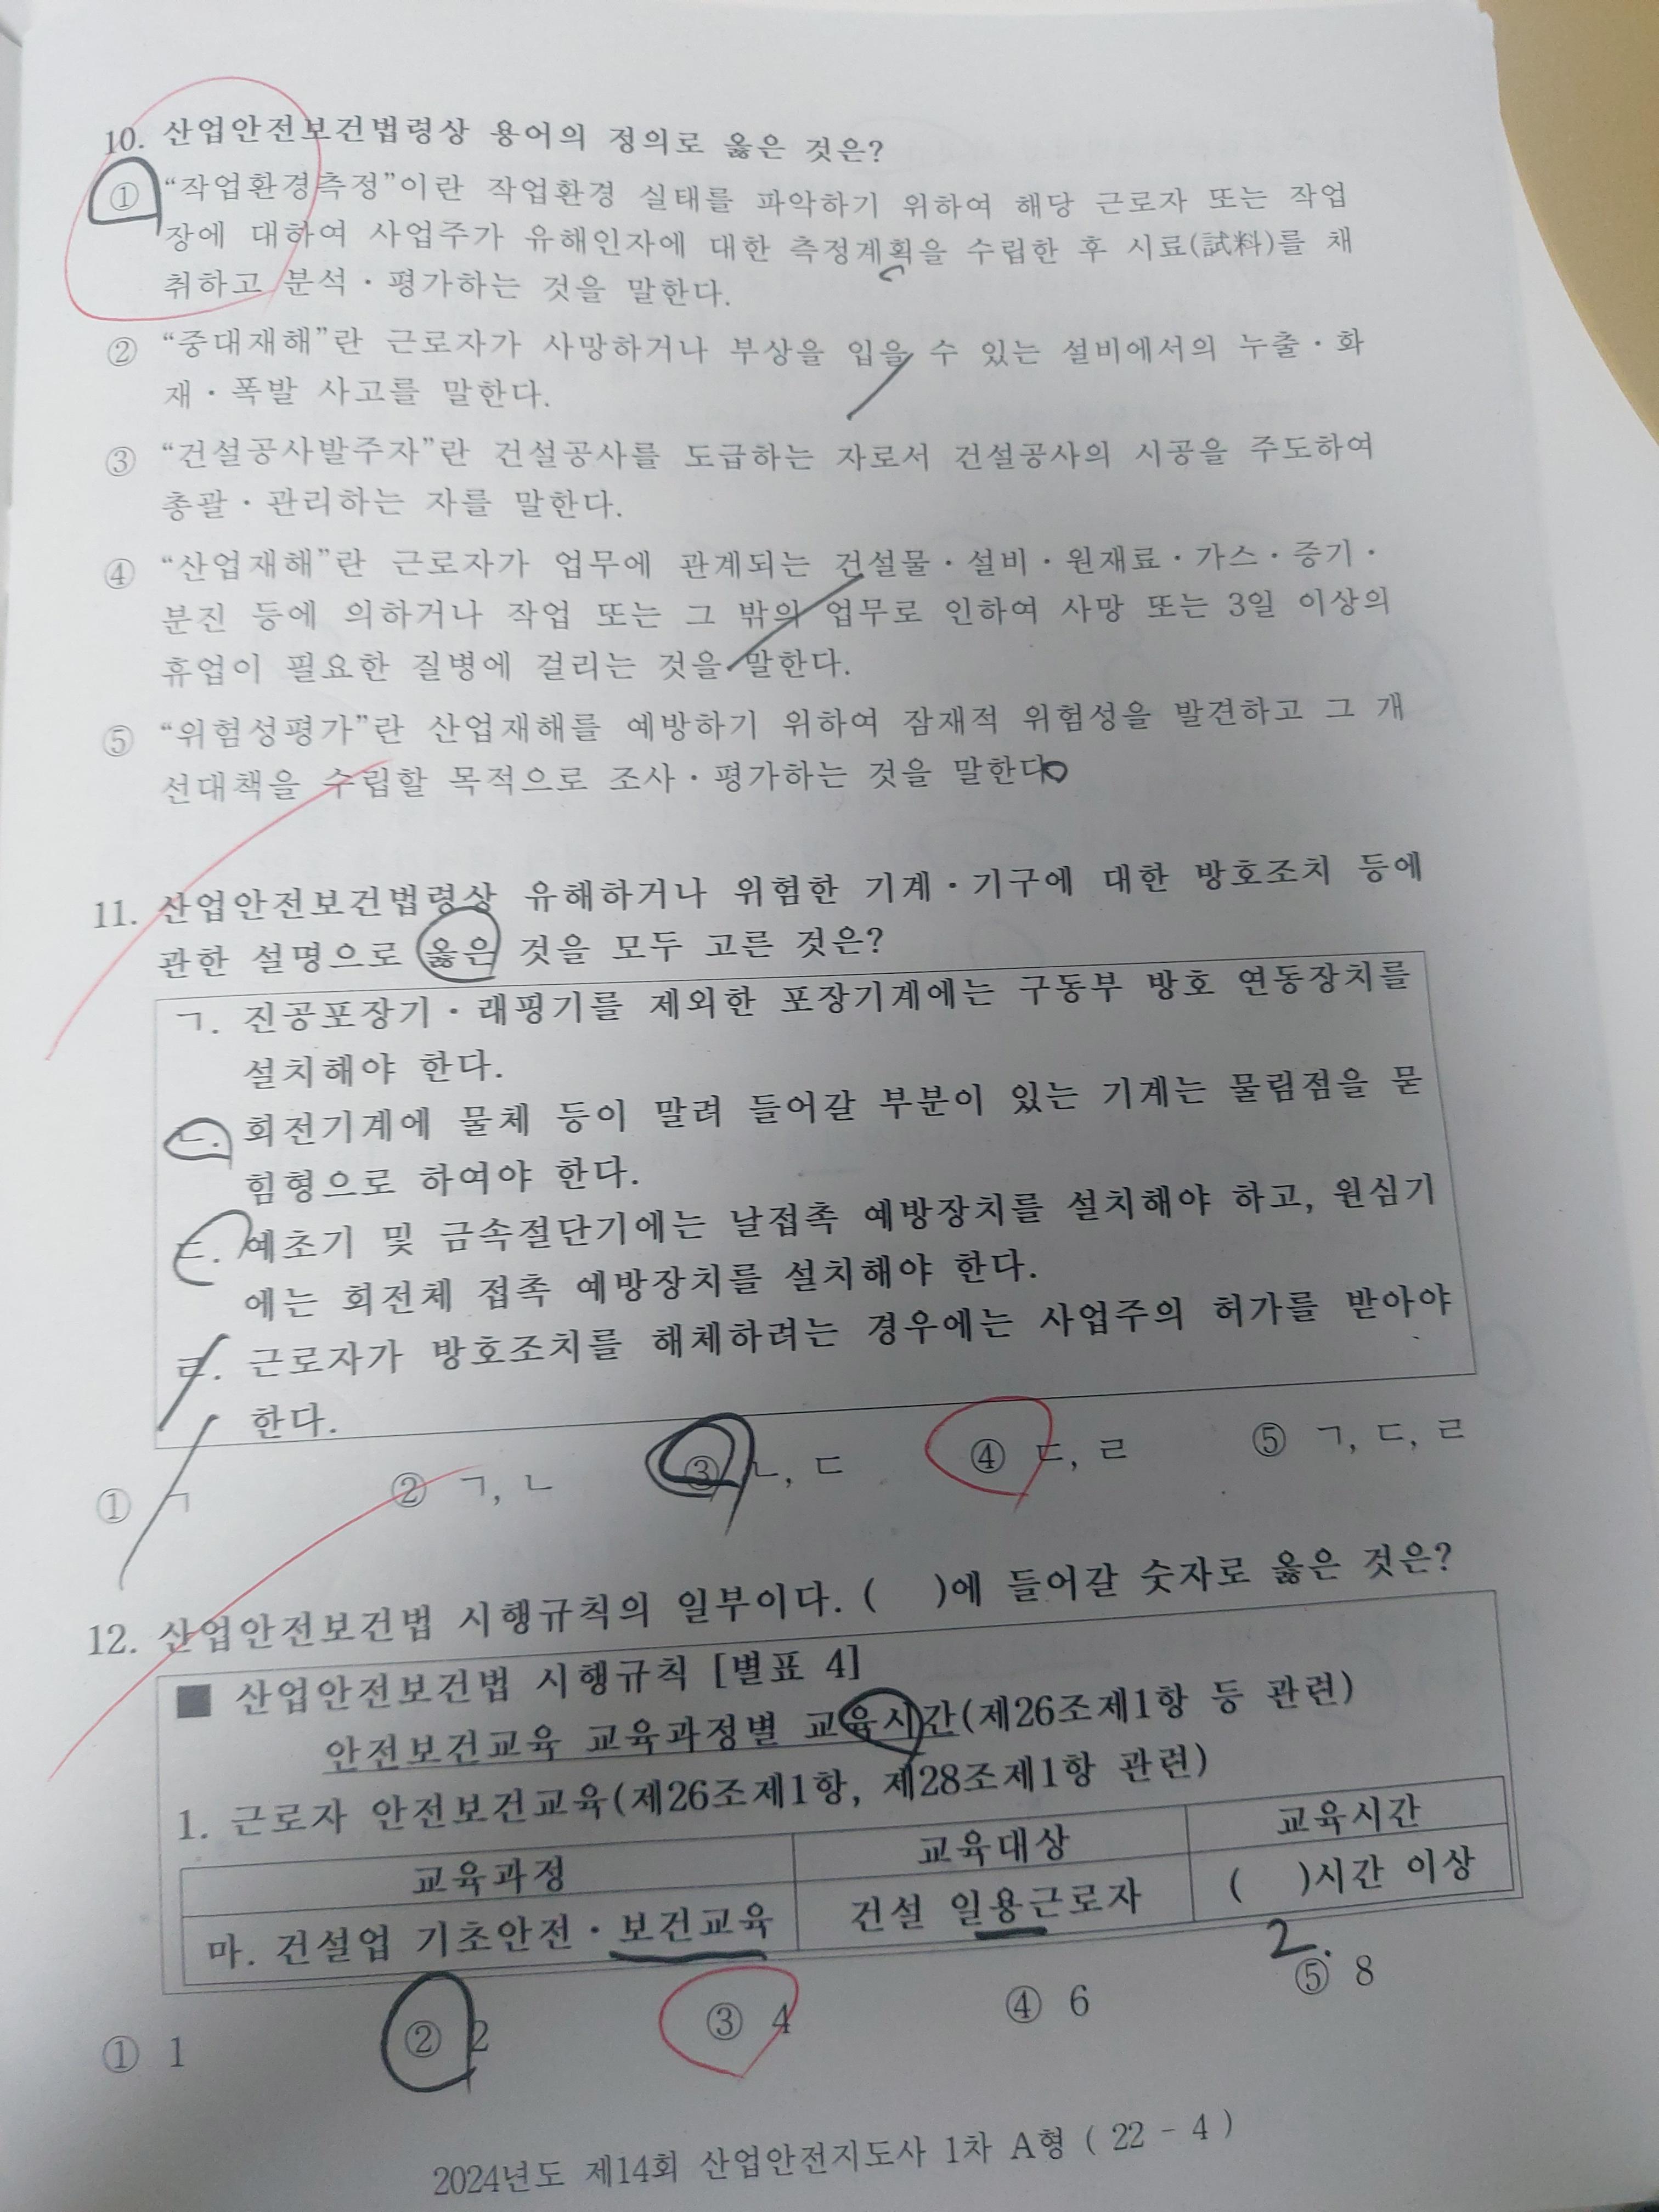 10. 산업안전보건법령상 용어의 정의로 옳은 것은?
① “작업환경측정”이란 작업환경 실태를 파악하기 위하여 해당 근로자 또는 작업
장에 대하여 사업주가 유해인자에 대한 측정계획을 수립한 후 시료(試料)를 채
취하고 분석·평가하는 것을 말한다.
② “중대재해”란 근로자가 사망하거나 부상을 입을 수 있는 설비에서의 누출·화
재·폭발 사고를 말한다.
③ “건설공사발주자”란 건설공사를 도급하는 자로서 건설공사의 시공을 주도하여
총괄·관리하는 자를 말한다.
④ “산업재해”란 근로자가 업무에 관계되는 건설물·설비·원재료·가스·증기·
분진 등에 의하거나 작업 또는 그 밖의 업무로 인하여 사망 또는 3일 이상의
휴업이 필요한 질병에 걸리는 것을 말한다.
⑤ “위험성평가”란 산업재해를 예방하기 위하여 잠재적 위험성을 발견하고 그 개
선대책을 수립할 목적으로 조사·평가하는 것을 말한다.
11. 산업안전보건법령상 유해하거나 위험한 기계·기구에 대한 방호조치 등에
관한 설명으로 옳은 것을 모두 고른 것은?
ㄱ. 진공포장기·래핑기를 제외한 포장기계에는 구동부 방호 연동장치를
설치해야 한다.
ㄴ. 회전기계에 물체 등이 말려 들어갈 부분이 있는 기계는 물림점을 묻
힘형으로 하여야 한다.
ㄷ. 예초기 및 금속절단기에는 날접촉 예방장치를 설치해야 하고, 원심기
에는 회전체 접촉 예방장치를 설치해야 한다.
ㄹ. 근로자가 방호조치를 해체하려는 경우에는 사업주의 허가를 받아야
한다.
① ㄱ ② ㄱ, ㄴ ③ ㄴ, ㄷ ④ ㄷ, ㄹ ⑤ ㄱ, ㄷ, ㄹ
12. 산업안전보건법 시행규칙의 일부이다. ( )에 들어갈 숫자로 옳은 것은?
■ 산업안전보건법 시행규칙 [별표 4]
안전보건교육 교육과정별 교육시간(제26조제1항 등 관련)
1. 근로자 안전보건교육(제26조제1항, 제28조제1항 관련)
교육과정 교육대상 교육시간
마. 건설업 기초안전·보건교육 건설 일용근로자 ( )시간 이상
2.
① 1 ② 2 ③ 4 ④ 6 ⑤ 8
2024년도 제14회 산업안전지도사 1차 A형 ( 22 - 4 )